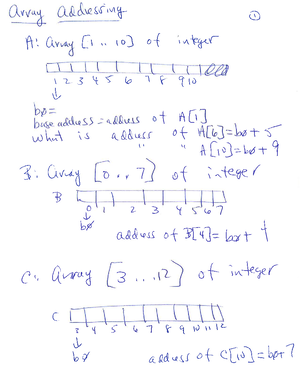 Array Addressing
1
A: array [1 .. 10] of integer
1 2 3 4 5 6 7 8 9 10
bø =
base address = address of A[1]
what is address of A[6] = bø + 5
" " A[10] = bø + 9
B: array [0 .. 7] of integer
B
0 1 2 3 4 5 6 7
bø
address of B[4] = bø + 4
C: array [3 ... 12] of integer
C
3 4 5 6 7 8 9 10 11 12
bø
address of C[10] = bø + 7